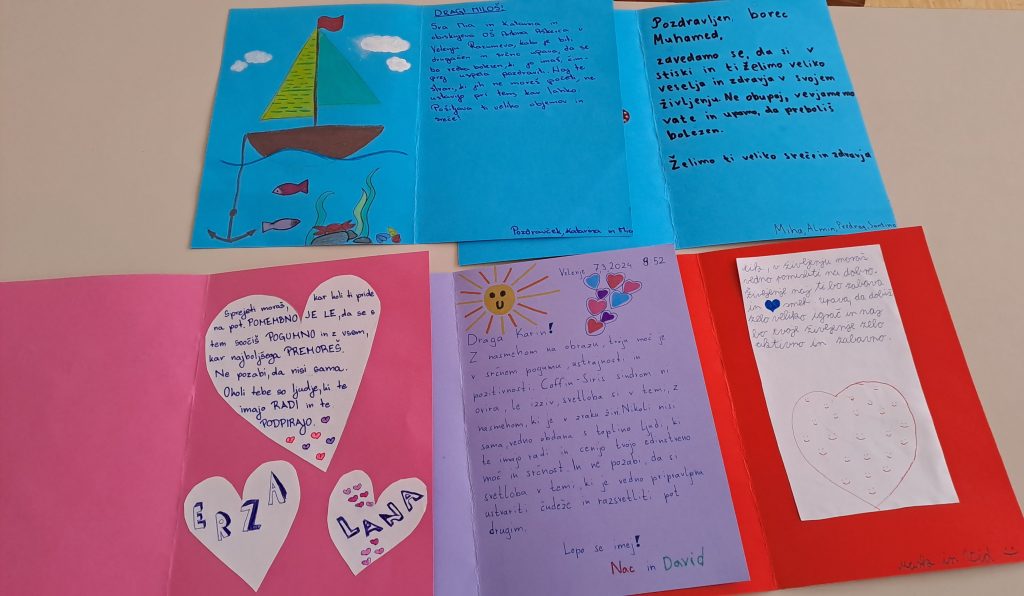 DRAGI MILOŠ!
Sva Mia in Katarina in
obiskujeva OŠ Antona Aškerca v
Velenju. Razumeva, kako je biti
drugačen in srčno upava, da se
bo redka bolezen, ki jo imaš, čim-
prej uspela pozdraviti. Naj te
stvari, ki jih ne moreš početi, ne
ustavijo pri tem, kar lahko.
Pošiljava ti veliko objemov in
sreče!
Pozdravček, Katarina in Mia
Pozdravljen, borec
Muhamed,
zavedamo se, da si v
stiski in ti želimo veliko
veselja in zdravja v svojem
življenju. Ne obupaj, verjamemo
vate in upamo, da preboliš
bolezen.
Želimo ti veliko sreče in zdravja
Miha, Almin, Predrag, Santino
Sprejeti moraš, kar koli ti pride
na pot. POMEMBNO JE LE, da se s
tem soočiš POGUMNO in z vsem,
kar najboljšega PREMOREŠ.
Ne pozabi, da nisi sama.
Okoli tebe so ljudje, ki te
imajo RADI in te
PODPIRAJO.
ERZA
LANA
Velenje 7.3.2024 8 52
Draga Karin!
Z nasmehom na obrazu, tvoja moč je
v srčnem pogumu, ustrajnosti in
pozitivnosti. Coffin-Siris sindrom ni
ovira, le izziv, svetloba si v temi, z
nasmehom, ki je v zraku žin. Nikoli nisi
sama, vedno obdana s toplino ljudi, ki
te imajo radi in cenijo tvojo edinstveno
moč in srčnost. In ne pozabi, da si
svetloba v temi, ki je vedno pripravljena
ustvariti čudeže in razsvetliti pot
drugim.
Lepo se imej!
Nac in David
v življenju moraš
vedno pomisliti na dobro.
Življenje naj te bo zabava
in smeh. Upava, da dobiš
zelo veliko igrač in naj
bo tvoje življenje zelo
aktivno in zabavno.
in Vid